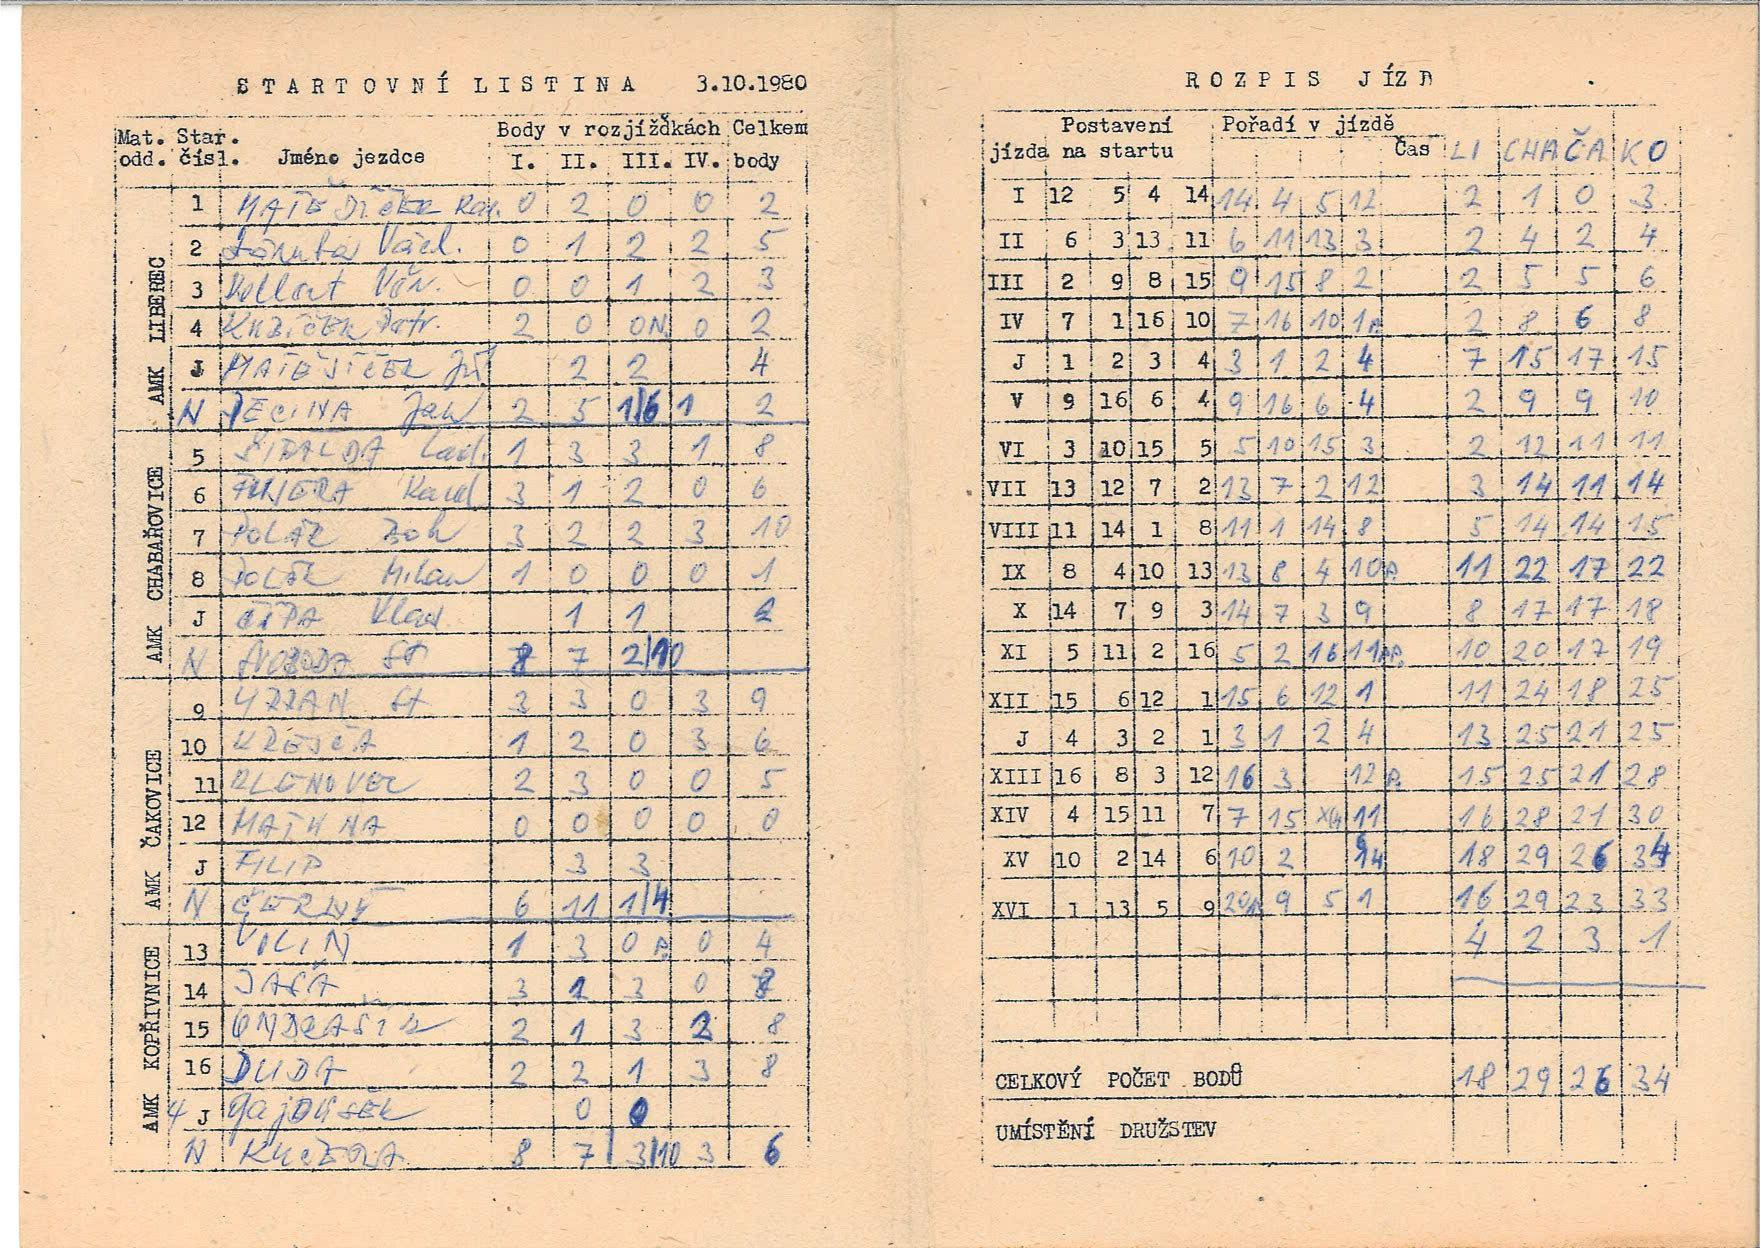 STARTOVNÍ LISTINA 3.10.1980
Mat. odd. Star. čísl. Jméno jezdce Body v rozjížďkách Celkem body
I. II. III. IV.
AMK LIBEREC
1 0 2 0 0 2
2 0 1 2 2 5
3 0 0 1 2 3
4 2 0 0N 0 2
J 2 2 4
N PECINA Jan 2 5 1/6 1 2
AMK CHABAŘOVICE
5 Lad. 1 3 3 1 8
6 Karel 3 1 2 0 6
7 POLÁK Boh 3 2 2 3 10
8 POLÁK Milan 1 0 0 0 1
J ČÍPA 1 1 2
N SVOBODA St 8 7 2/10
AMK ČAKOVICE
9 URBAN St 3 3 0 3 9
10 KREJČA 1 2 0 3 6
11 KLENOVEC 2 3 0 0 5
12 MATUNA 0 0 0 0 0
J FILIP 3 3
N ČERNÝ 6 11 1/4
AMK KOPŘIVNICE
13 VOLIN 1 3 0 P. 0 4
14 3 1 3 0 7
15 ONDRAŠÍK 2 1 3 2 8
16 DUDA 2 2 1 3 8
J 0 0
N KUČERA 8 7 3/10 3 6
ROZPIS JÍZD
jízda Postavení na startu Pořadí v jízdě Čas LI CHA ČA KO
I 12 5 4 14 14 4 5 12 2 1 0 3
II 6 3 13 11 6 11 13 3 2 4 2 4
III 2 9 8 15 9 15 8 2 2 5 5 6
IV 7 1 16 10 7 16 10 1P. 2 8 6 8
J 1 2 3 4 3 1 2 4 7 15 17 15
V 9 16 6 4 9 16 6 4 2 9 9 10
VI 3 10 15 5 5 10 15 3 2 12 11 11
VII 13 12 7 2 13 7 2 12 3 14 11 14
VIII 11 14 1 8 11 1 14 8 5 14 14 15
IX 8 4 10 13 13 8 4 10P. 11 22 17 22
X 14 7 9 3 14 7 3 9 8 17 17 18
XI 5 11 2 16 5 2 16 11 10 20 17 19
XII 15 6 12 1 15 6 12 1 11 24 18 25
J 4 3 2 1 3 1 2 4 13 25 21 25
XIII 16 8 3 12 16 3 12 P. 15 25 21 28
XIV 4 15 11 7 7 15 11 16 28 21 30
XV 10 2 14 6 10 2 14 18 29 26 34
XVI 1 13 5 9 9 5 1 16 29 23 33
4 2 3 1
CELKOVÝ POČET BODŮ 18 29 26 34
UMÍSTĚNÍ DRUŽSTEV